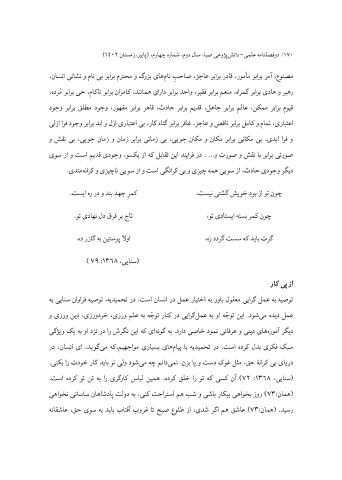 ١٧٠/ دوفصلنامه علمی- دانش‌پژوهی صبا، سال دوم، شماره چهارم، (پاییز، زمستان ١٤٠٢)
مصنوع، آمر برابر مأمور، قادر برابر عاجز، صاحب نام‌های بزرگ و محترم برابر بی نام و نشانی انسان،
رهبر و هادی برابر گمراه، منعم برابر فقیر، واحد برابر دارای همانند، کامران برابر ناکام، حی برابر مُرده،
قیوم برابر ممکن، عالم برابر جاهل، قدیم برابر حادث، قاهر برابر مقهور، وجود مطلق برابر وجود
اعتباری، تمام و کامل برابر ناقص و عاجز، غافر برابر گناه کار، بی اعتباری ازل و ابد برابر وجود فرا ازلی
و فرا ابدی، بی مکانی برابر مکان و مکان جویی، بی زمانی برابر زمان و زمان جویی، بی نقش و
صورتی برابر با نقش و صورت و... . در فرایند این تقابل که از یکسو، وجودی قدیم است و از سوی
دیگر وجودی حادث، از سویی همه چیزی و بی کرانگی است و از سویی ناچیزی و کرانه‌مندی.
چون تو از بود خویش گشتی نیست، کمر جهد بند و در ره ایست.
چون کمر بسته ایستادی تو، تاج بر فرق دل نهادی تو.
گرت باید که سست گردد زه، اولا پوستین به گازر ده.
(سنایی، ١٣٦٨: ٧٩ )
از پی کار
توصیه به عمل گرایی معلول باور به اختیار عمل در انسان است. در تحمیدیه، توصیه فراوان سنایی به
عمل دیده می‌شود. این توجّه او به عمل‌گرایی در کنار توجّه به علم ورزی، خردورزی، دین ورزی و
دیگر آموزه‌های دینی و عرفانی نمود خاصی دارد. به گونه‌ای که این نگرش را در نزد او به یک ویژگی
سبک فکری بدل کرده است. در تحمیدیه با پیام‌های بسیاری مواجهیم،که می‌گوید، ای انسان، در
دریای بی کرانهٔ حق، مثل غوک دست و پا بزن. نمی‌دانم چه می‌شود ولی تو باید کار خودت را بکنی.
(سنایی، ١٣٦٨: ٧٢) آن کسی که تو را خلق کرده، همین لباس کارگری را به تن تو کرده است.
(همان:٧٣) روز بخواهی بیکار باشی و شب هم استراحت کنی، به دولت پادشاهان ساسانی نخواهی
رسید. (همان:٧٣) عاشق هم اگر شدی، از طلوع صبح تا غروب آفتاب باید به سوی حق، عاشقانه